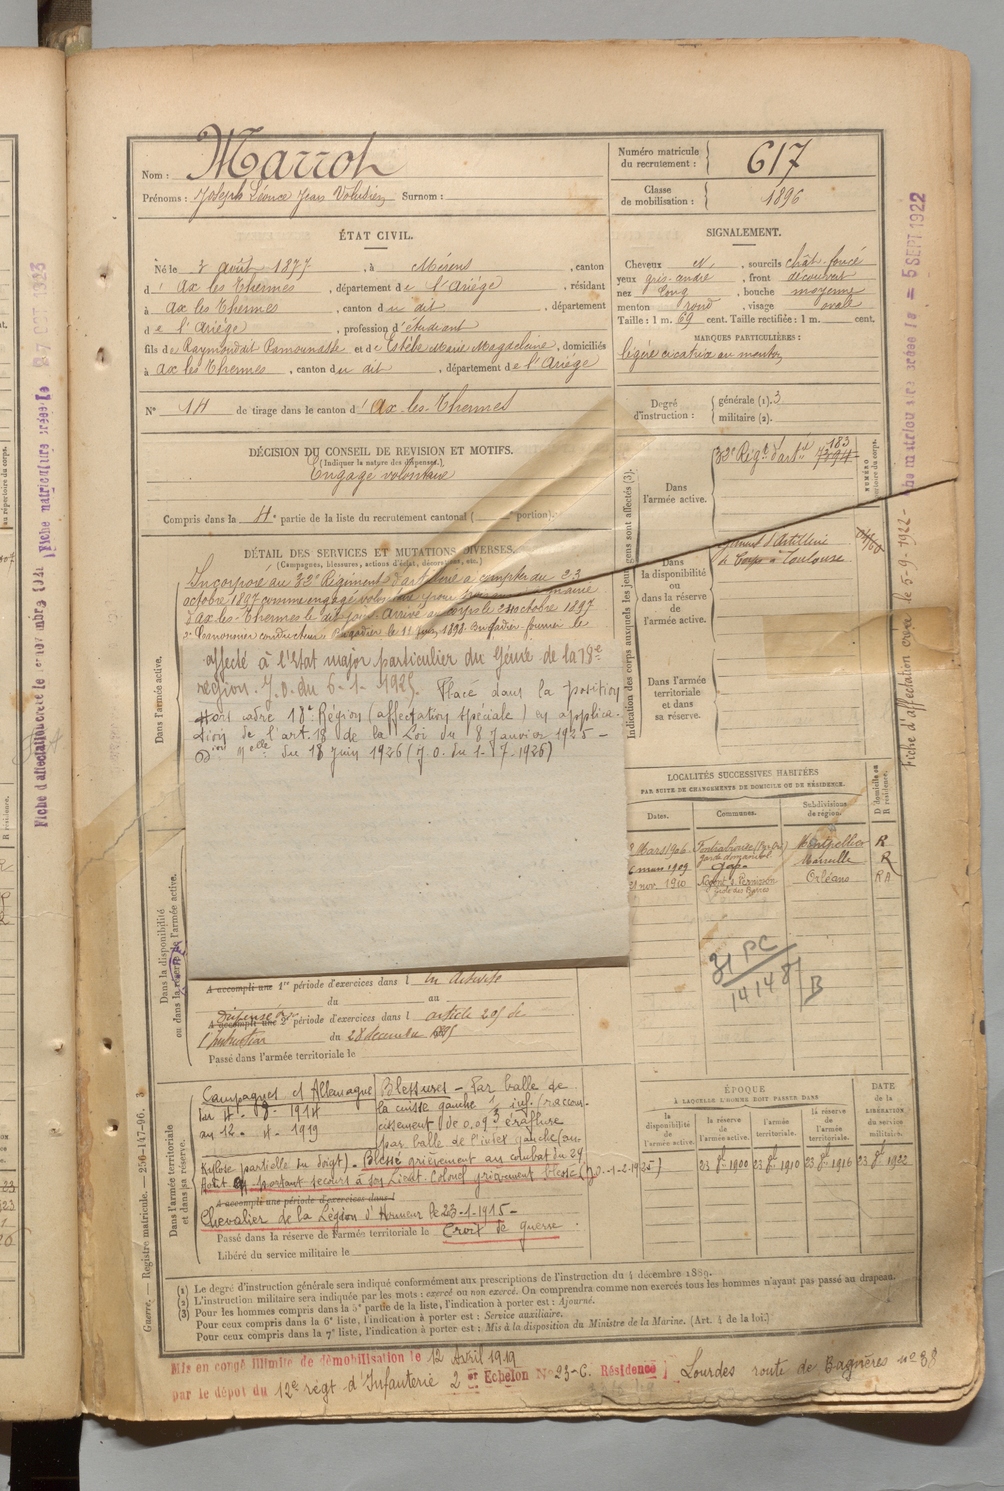 Nom : Marrot
Prénoms : Joseph Léonce Jean Volusien Surnom :
Numéro matricule du recrutement : 617
Classe de mobilisation : 1896
ÉTAT CIVIL.
Né le 3 août 1877, à Mérens, canton
d' Ax les Thermes, département de l'Ariège, résidant
à Ax les Thermes, canton du dit, département
de l'Ariège, profession d'étudiant
fils de Raymond dit Ramounasse et de Estèbe Marie Magdeleine, domiciliés
à Ax les Thermes, canton du dit, département de l'Ariège
N° 14 de tirage dans le canton d' Ax-les-Thermes
SIGNALEMENT.
Cheveux N, sourcils chât. foncé
yeux gris-ardre, front découvert
nez long, bouche moyenne
menton rond, visage oval
Taille : 1 m. 69 cent. Taille rectifiée : 1 m. cent.
MARQUES PARTICULIÈRES :
légère cicatrice au menton
Degré d'instruction : générale (1). 3
militaire (2).
DÉCISION DU CONSEIL DE REVISION ET MOTIFS.
(Indiquer la nature des dispenses.)
Engagé volontaire
Compris dans la 4e partie de la liste du recrutement cantonal ( portion).
DÉTAIL DES SERVICES ET MUTATIONS DIVERSES.
(Campagnes, blessures, actions d'éclat, décorations, etc.)
Incorporé au 32e Régiment d'artillerie à compter du 23
octobre 1897 comme engagé volontaire pour
d'Ax-les-Thermes le dit jour. Arrivé au corps le octobre 1897
2e Canonnier conducteur. Brigadier le 11 juin 1898. Brigadier-fourrier le
affecté à l'Etat major particulier du Génie de la 18e
région. J.O. du 6-1-1925. Placé dans la position
Hors cadre 18e Région (affectation spéciale) en applica-
tion de l'art. 18 de la Loi du 8 Janvier 1925 -
Don Mlle du 18 juin 1926 (J.O. du 1-7-1926)
Indication des corps auxquels les jeunes gens sont affectés (3).
Dans l'armée active. 32e Régt d'artie 183
Dans la disponibilité ou dans la réserve de l'armée active.
Régiment d'Artillerie
Corps à Toulouse
Dans l'armée territoriale et dans sa réserve.
NUMÉRO
LOCALITÉS SUCCESSIVES HABITÉES
PAR SUITE DE CHANGEMENTS DE DOMICILE OU DE RÉSIDENCE.
Dates. Communes. Subdivisions de région. D domicile ou R résidence.
Mars 1906 Montpellier R
mars 1909 Gap Marseille R
21 nov. 1910 Nogent s. Vernisson Orléans RA
Garde des Barres
31 PC
141481 B
Dans l'armée active.
Dans la disponibilité ou dans la réserve de l'armée active.
A accompli une 1re période d'exercices dans l
du au
A accompli une 2e période d'exercices dans l article 205 de
l'Instruction du 28 décembre 1895
Passé dans l'armée territoriale le
Dans l'armée territoriale et dans sa réserve.
Campagnes ct Allemagne
du 4-8-1914
au 12-4-1919
Blessures - Par balle de
la cuisse gauche 1/3 inf. (raccour-
cissement de 0.09) éraflure
par balle de l'index gauche (an-
kylose partielle du doigt). Blessé grièvement au combat du 29
Août en portant secours à son Lieut. Colonel grièvement blessé (J.O. 1-2-1925)
A accompli une période d'exercices dans l
Chevalier de la Légion d'Honneur le 23-1-1915 -
Passé dans la réserve de l'armée territoriale le
Croix de guerre
Libéré du service militaire le
ÉPOQUE
À LAQUELLE L'HOMME DOIT PASSER DANS
la disponibilité de l'armée active.
la réserve de l'armée active.
l'armée territoriale.
la réserve de l'armée territoriale.
DATE de la LIBÉRATION du service militaire.
23 8bre 1900 23 8bre 1910 23 8bre 1916 23 8bre 1922
(1) Le degré d'instruction générale sera indiqué conformément aux prescriptions de l'instruction du 4 décembre 1889.
(2) L'instruction militaire sera indiquée par les mots : exercé ou non exercé. On comprendra comme non exercés tous les hommes n'ayant pas passé au drapeau.
(3) Pour les hommes compris dans la 5e partie de la liste, l'indication à porter est : Ajourné.
Pour ceux compris dans la 6e liste, l'indication à porter est : Service auxiliaire.
Pour ceux compris dans la 7e liste, l'indication à porter est : Mis à la disposition du Ministre de la Marine. (Art. 4 de la loi.)
Mis en congé illimité de démobilisation le 12 Avril 1919
par le dépôt du 12e régt d'Infanterie 2 er Echelon N° 23-C. Résidence] Lourdes route de Bagnères n° 38
Guerre. — Registre matricule. — 256-147-96.
Fiche d'affectation créée le 5-9-1922 -
Fiche matricule créée le = 5 SEPT 1922
Fiche matriculaire créée le 27 OCT 1923